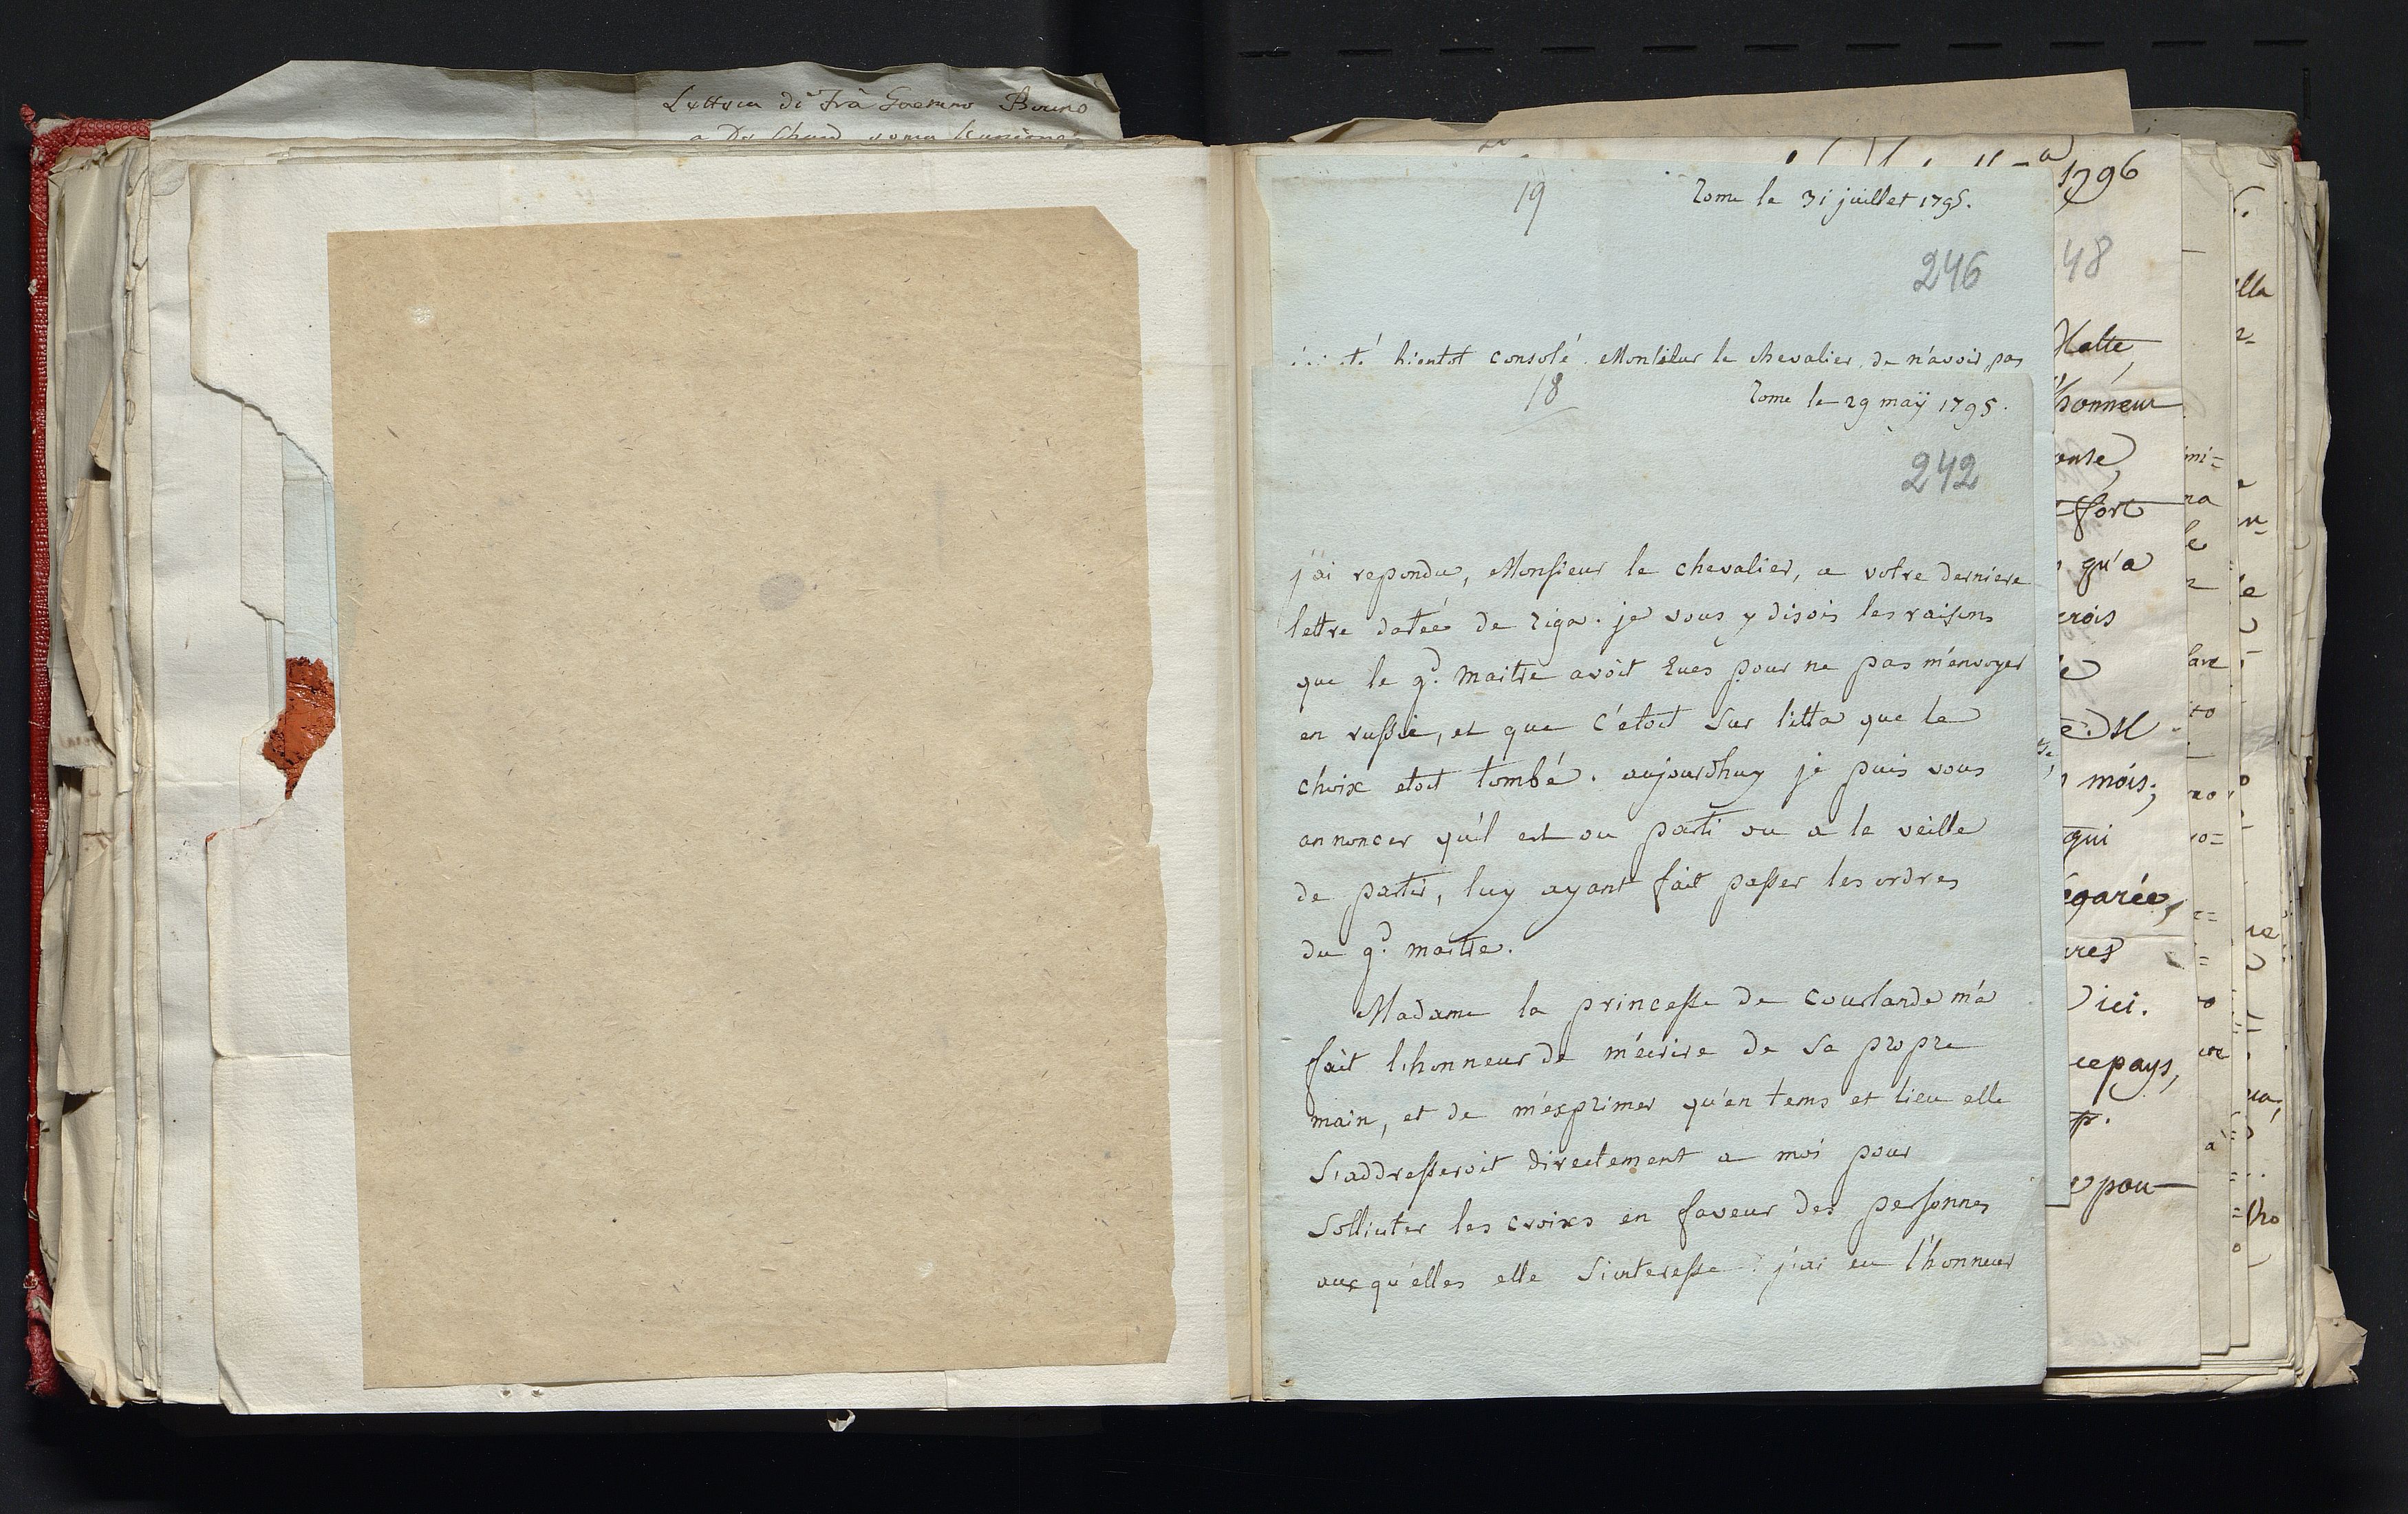 Lettera di Frà
19
Rome le 31 juillet 1795.
246
bientot consolé Monsieur le chevalier, de n'avoir pas
18
Rome le 29 maÿ 1795.
242
j'ai repondu, Monsieur le chevalier, a votre derniere
lettre datée de riga. je vous y disois les raisons
que le g.d maitre avoit Eues pour ne pas m'envoyer
en russie, et que c'étoit sur litta que le
choix etoit tombé. aujourdhuy je puis vous
annoncer qu'il est ou parti ou a la veille
de partir, luy ayant fait passer les ordres
du g.d maitre.
Madame la princesse de courlande m'a
fait l'honneur de m'écrire de sa propre
main, et de m'exprimer qu'en tems et lieu elle
s'addresseroit directement a moi pour
solliciter les croixs en faveur des personnes
auxqu'elles elle s'interesse. j'ai eu l'honneur
1796
48
Malte,
l'honneur
fort
qu'a
mois;
qui
égarée,
ici.
ce pays,
pou-